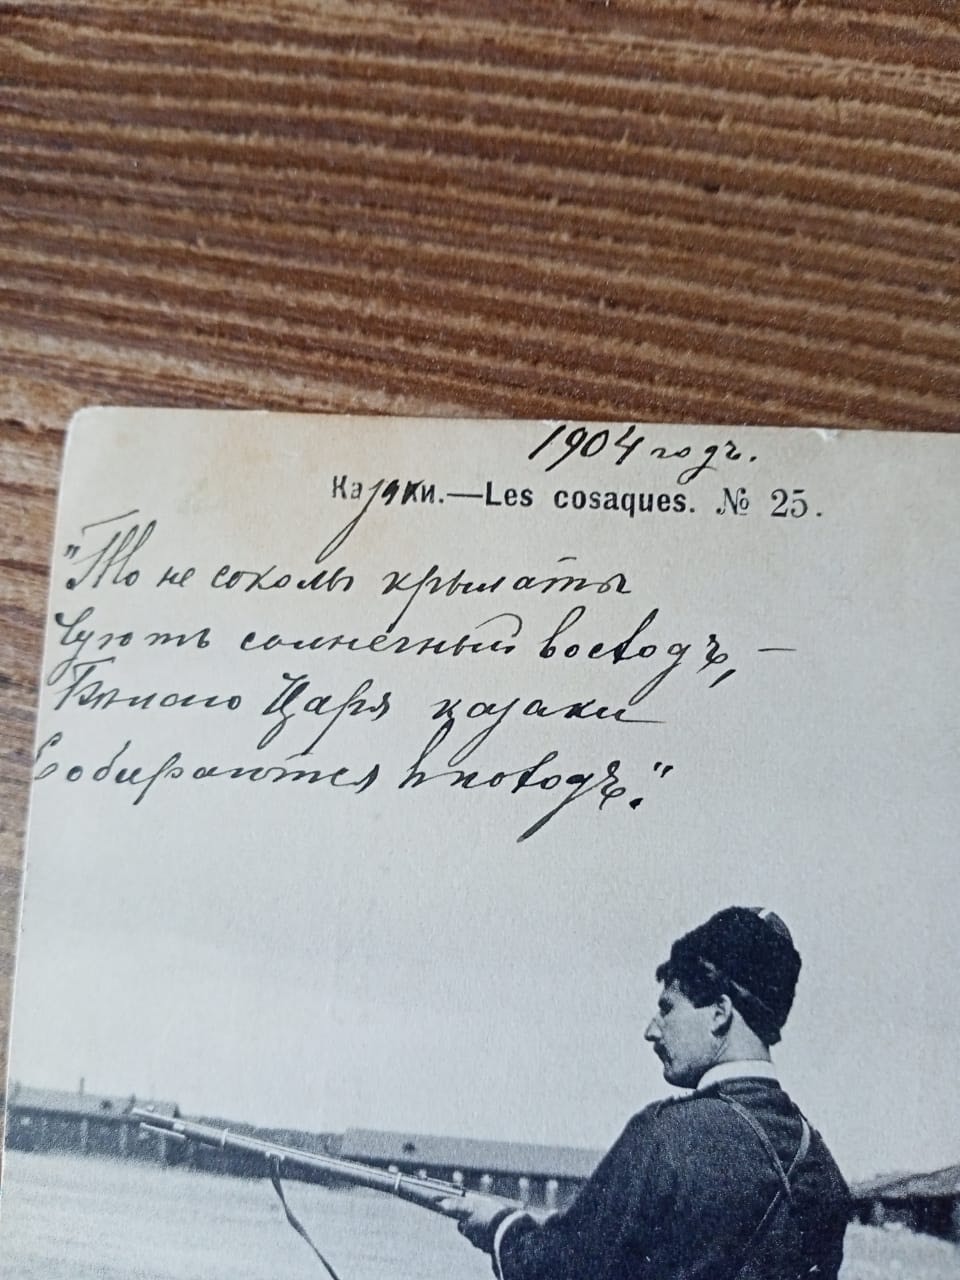 1904 годъ.
Казаки.—Les cosaques. № 25.
"То не соколы крылаты
Чуютъ солнечный восходъ, —
Бѣлаго Царя казаки
Собираются въ походъ."